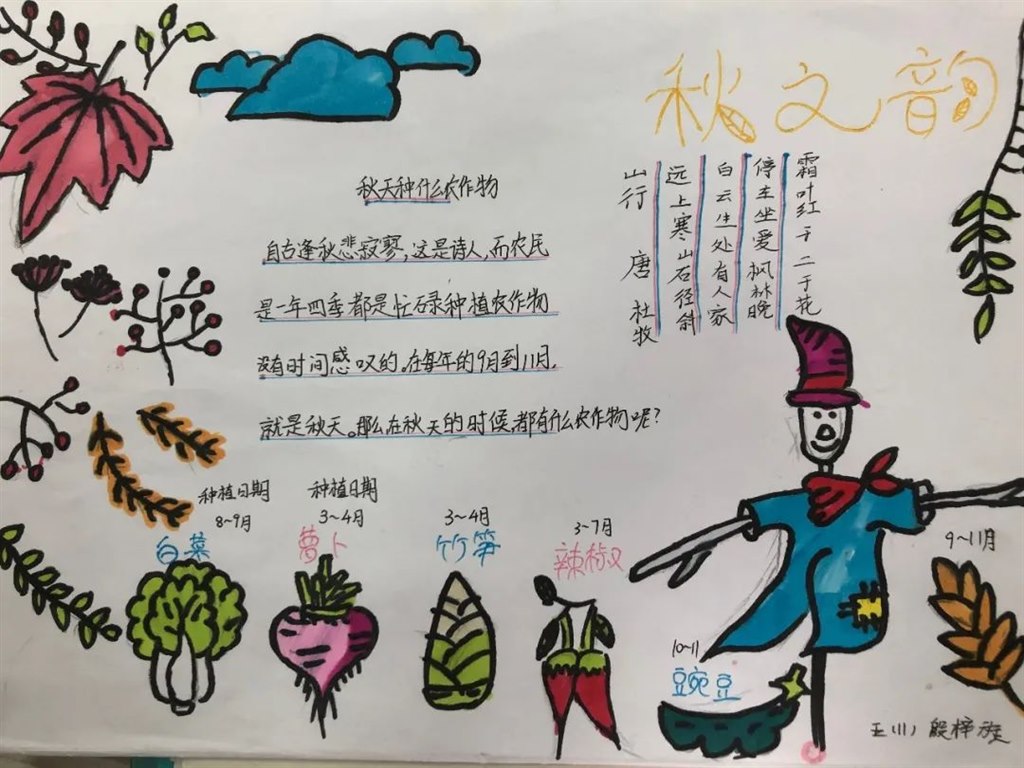 秋文韵
山行 唐 杜牧
远上寒山石径斜
白云生处有人家
停车坐爱枫林晚
霜叶红于二于花
秋天种什么农作物
自古逢秋悲寂寥,这是诗人,而农民
是一年四季都是忙碌种植农作物
没有时间感叹的。在每年的9月到11月,
就是秋天。那么在秋天的时候,都有什么农作物呢?
种植日期
8~9月
白菜
种植日期
3~4月
萝卜
3~4月
竹笋
3~7月
辣椒
10~11
豌豆
9~11月